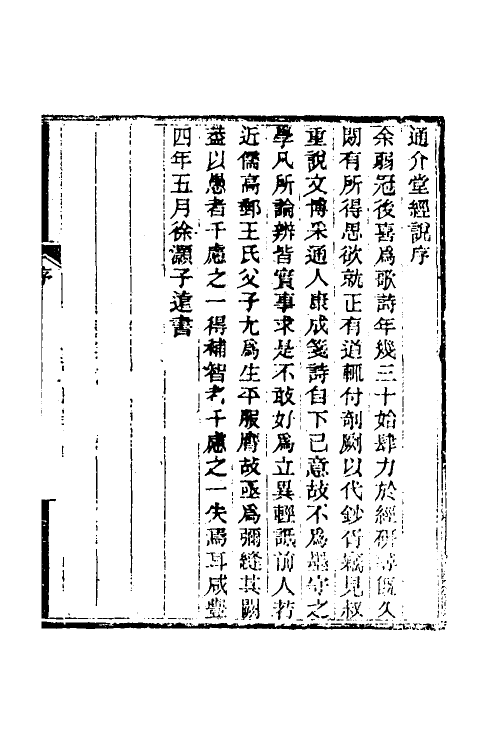 通介堂經說序
余弱冠後喜爲歌詩年幾三十始肆力於經研尋既久
閒有所得思欲就正有道輒付剞劂以代鈔胥竊見叔
重說文博采通人康成箋詩自下己意故不爲墨守之
學凡所論辨皆實事求是不敢好爲立異輕詆前人若
近儒高郵王氏父子尤爲生平服膺故亟爲彌縫其闕
蓋以愚者千慮之一得補智者千慮之一失焉耳咸豐
四年五月徐灝子遠書
序